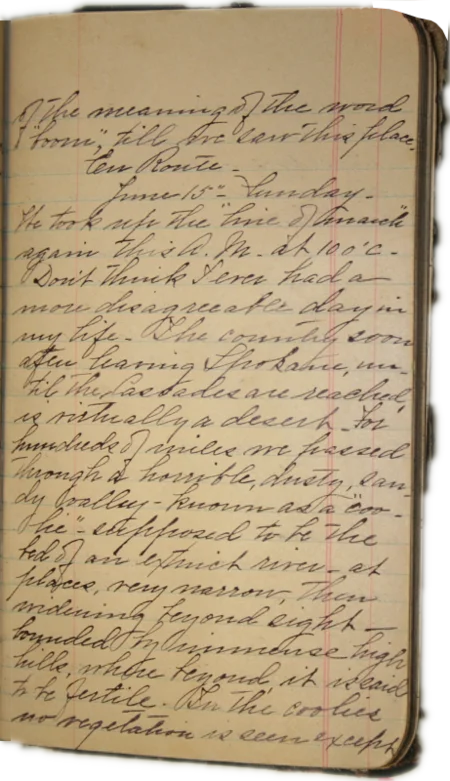 of the meaning of the word
"boom", till we saw this place.
En Route -
June 15" - Sunday -
We took up the "line of march"
again this A. M. at 10 o'c -
Don't think I ever had a
more disagreeable day in
my life - The country soon
after leaving Spokane, un-
til the Cascades are reached
is virtually a desert - For
hundreds of miles we passed
through a horrible, dusty, san-
dy valley - known as a "coo-
lie" - supposed to be the
bed of an extinct river - at
places, very narrow, then
widening beyond sight -
bounded by immense high
hills, where beyond it is said
to be fertile. In the coolies
no vegetation is seen except